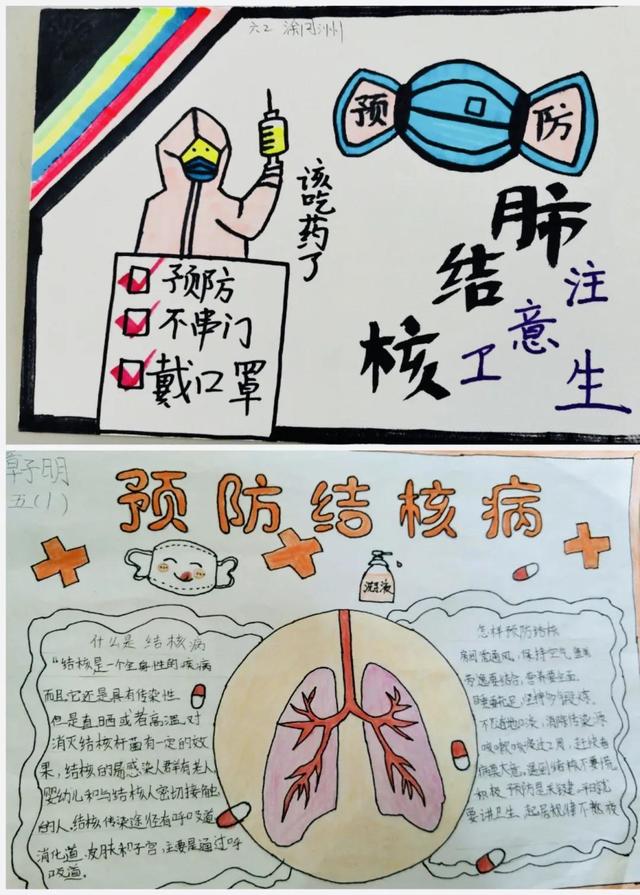 六2
预防
肺结核
注意卫生
该吃药了
预防
不串门
戴口罩
五(1)
预防结核病
洗手液
什么是结核病
"结核是一个全身性的疾病
而且它还是具有传染性
但是直晒或者高温对
消灭结核杆菌有一定的效
果,结核的易感染人群有老人
婴幼儿和与结核人密切接触
的人,结核传染途径有呼吸道
消化道、皮肤和子宫,主要是通过呼
吸道。
怎样预防结核
房间常通风,保持空气
劳逸要结合,营养要全面
睡眠充足,坚持多锻炼。
不随地吐痰,消除传染源
咳嗽咳痰过2周,赶快看
病莫大意,遇到结核不要慌
积极预防是关键,平日就
要讲卫生,起居规律不熬夜